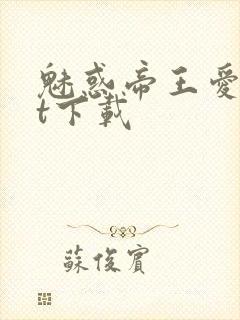 魅惑帝王愛
t下載
蘇俊賓